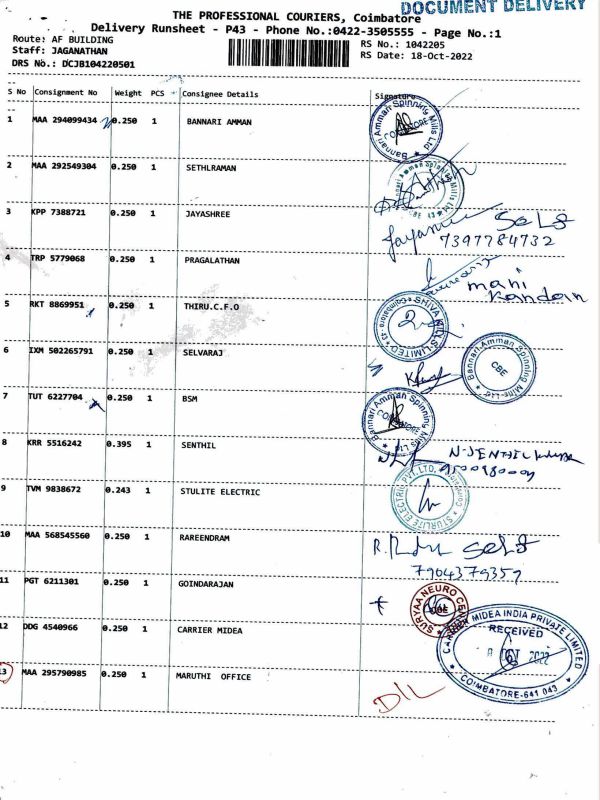 DOCUMENT DELIVERY
THE PROFESSIONAL COURIERS, Coimbatore
Delivery Runsheet - P43 - Phone No.:0422-3505555 - Page No.:1
Route: AF BUILDING
RS No.: 1042205
Staff: JAGANATHAN
RS Date: 18-Oct-2022
DRS No.: DCJB104220501
S No Consignment No Weight PCS Consignee Details Signature
1 MAA 294099434 0.250 1 BANNARI AMMAN
Bannari Amman Spinning Mills Ltd COIMBATORE
2 MAA 292549304 0.250 1 SETHLRAMAN
Bannari Amman Spinning Mills Ltd CBE 43
3 KPP 7388721 0.250 1 JAYASHREE
Jayasree Self
7397784732
4 TRP 5779068 0.250 1 PRAGALATHAN
mani
Kandan
5 RKT 8869951 0.250 1 THIRU.C.F.O
SHIVA MILLS LIMITED Coimbatore
6 IXM 502265791 0.250 1 SELVARAJ
Bannari Amman Spinning Mills Ltd CBE
7 TUT 6227704 0.250 1 BSM
Bannari Amman Spinning Mills Ltd COIMBATORE
8 KRR 5516242 0.395 1 SENTHIL
N-SENTHIL
9 TVM 9838672 0.243 1 STULITE ELECTRIC
STURLITE ELECTRIC PVT. LTD.
10 MAA 568545560 0.250 1 RAREENDRAM
Self
7904379357
11 PGT 6211301 0.250 1 GOINDARAJAN
SURYAA NEURO CBE
12 DDG 4540966 0.250 1 CARRIER MIDEA
CARRIER MIDEA INDIA PRIVATE LIMITED
RECEIVED
OCT 2022
COIMBATORE-641 043
13 MAA 295790985 0.250 1 MARUTHI OFFICE
D/L